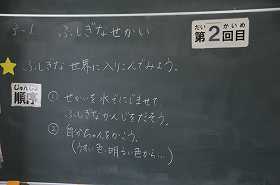 5-1 ふしぎなせかい
だい かいめ
第2回目
ふしぎな世界に入りこんでみよう。
じゅんじょ
順序
① せかいを水でにじませて
ふしぎなかんじをだそう。
② 自分ちゃんをかこう。
(うすい色、明るい色から…)